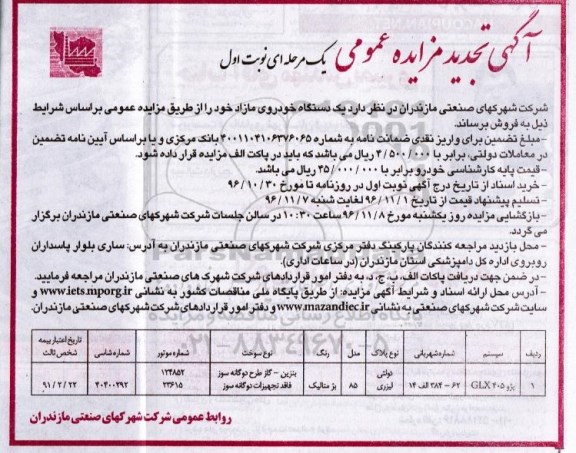 آگهی تجدید مزایده عمومی یک مرحله ای نوبت اول
شرکت شهرکهای صنعتی مازندران در نظر دارد یک دستگاه خودروی مازاد خود را از طریق مزایده عمومی براساس شرایط
ذیل به فروش برساند.
- مبلغ تضمین برای واریز نقدی ضمانت نامه به شماره ۴۰۰۱۱۰۴۱۰۶۳۷۶۰۶۵ بانک مرکزی و یا براساس آیین نامه تضمین
در معاملات دولتی، برابر با ۴/۵۰۰/۰۰۰ ریال می باشد که باید در پاکت الف مزایده قرار داده شود.
- قیمت پایه کارشناسی خودرو برابر با ۴۵/۰۰۰/۰۰۰ ریال می باشد.
- خرید اسناد از تاریخ درج آگهی نوبت اول در روزنامه تا مورخ ۹۶/۱۰/۳۰
- تسلیم پیشنهاد قیمت از تاریخ ۹۶/۱۱/۱ لغایت شنبه ۹۶/۱۱/۷
- بازگشایی مزایده روز یکشنبه مورخ ۹۶/۱۱/۸ ساعت ۱۰:۳۰ در سالن جلسات شرکت شهرکهای صنعتی مازندران برگزار
می گردد.
- محل بازدید مراجعه کنندگان پارکینگ دفتر مرکزی شرکت شهرکهای صنعتی مازندران به آدرس: ساری بلوار پاسداران
روبروی اداره کل دامپزشکی استان مازندران (در ساعات اداری).
- در ضمن جهت دریافت پاکات الف، ب، ج، د، به دفتر امور قراردادهای شرکت شهرک های صنعتی مازندران مراجعه فرمایید.
- آدرس محل ارائه اسناد و شرایط آگهی مزایده: از طریق پایگاه ملی مناقصات کشور به نشانی www.iets.mporg.ir و
سایت شرکت شهرکهای صنعتی به نشانی www.mazandiec.ir و دفتر امور قراردادهای شرکت شهرکهای صنعتی مازندران.
ردیف سیستم شماره شهربانی نوع پلاک مدل رنگ نوع سوخت شماره موتور شماره شاسی تاریخ اعتبار بیمه شخص ثالث
۱ پژو ۴۰۵ GLX ۶۲ - ۳۸۴ الف ۱۴ دولتی لیزری ۸۵ بژ متالیک بنزین - گاز طرح دوگانه سوز فاقد تجهیزات دوگانه سوز ۱۲۴۸۵۲ ۲۳۶۱۵ ۴۰۴۰۰۲۹۲ ۹۱/۲/۲۲
روابط عمومی شرکت شهرکهای صنعتی مازندران
۰۲۱-۸۸۳۴۹۶۷۰-۵